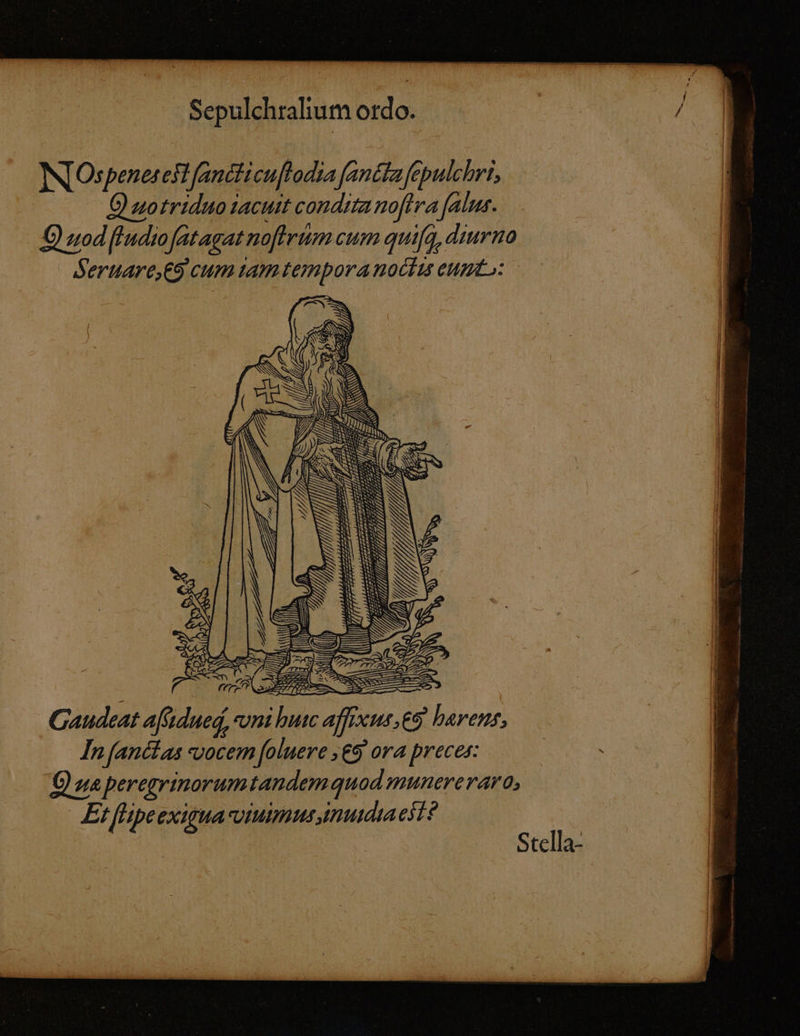 Sepulchralium ordo.
NOs penes est sancti custodia sancta sepulchri,
Quo triduo iacuit condita nostra salus.
Quod studio satagat nostrûm cum quisq; diurno
Seruare, & cum iam tempora noctis eunt:
Gaudeat assidueq; vni huic affixus, & hærens,
In sanctas vocem soluere, & ora preces:
Quæ peregrinorum tandem quod munere raro,
Et stipe exigua viuimus, inuidia est?
Stella-